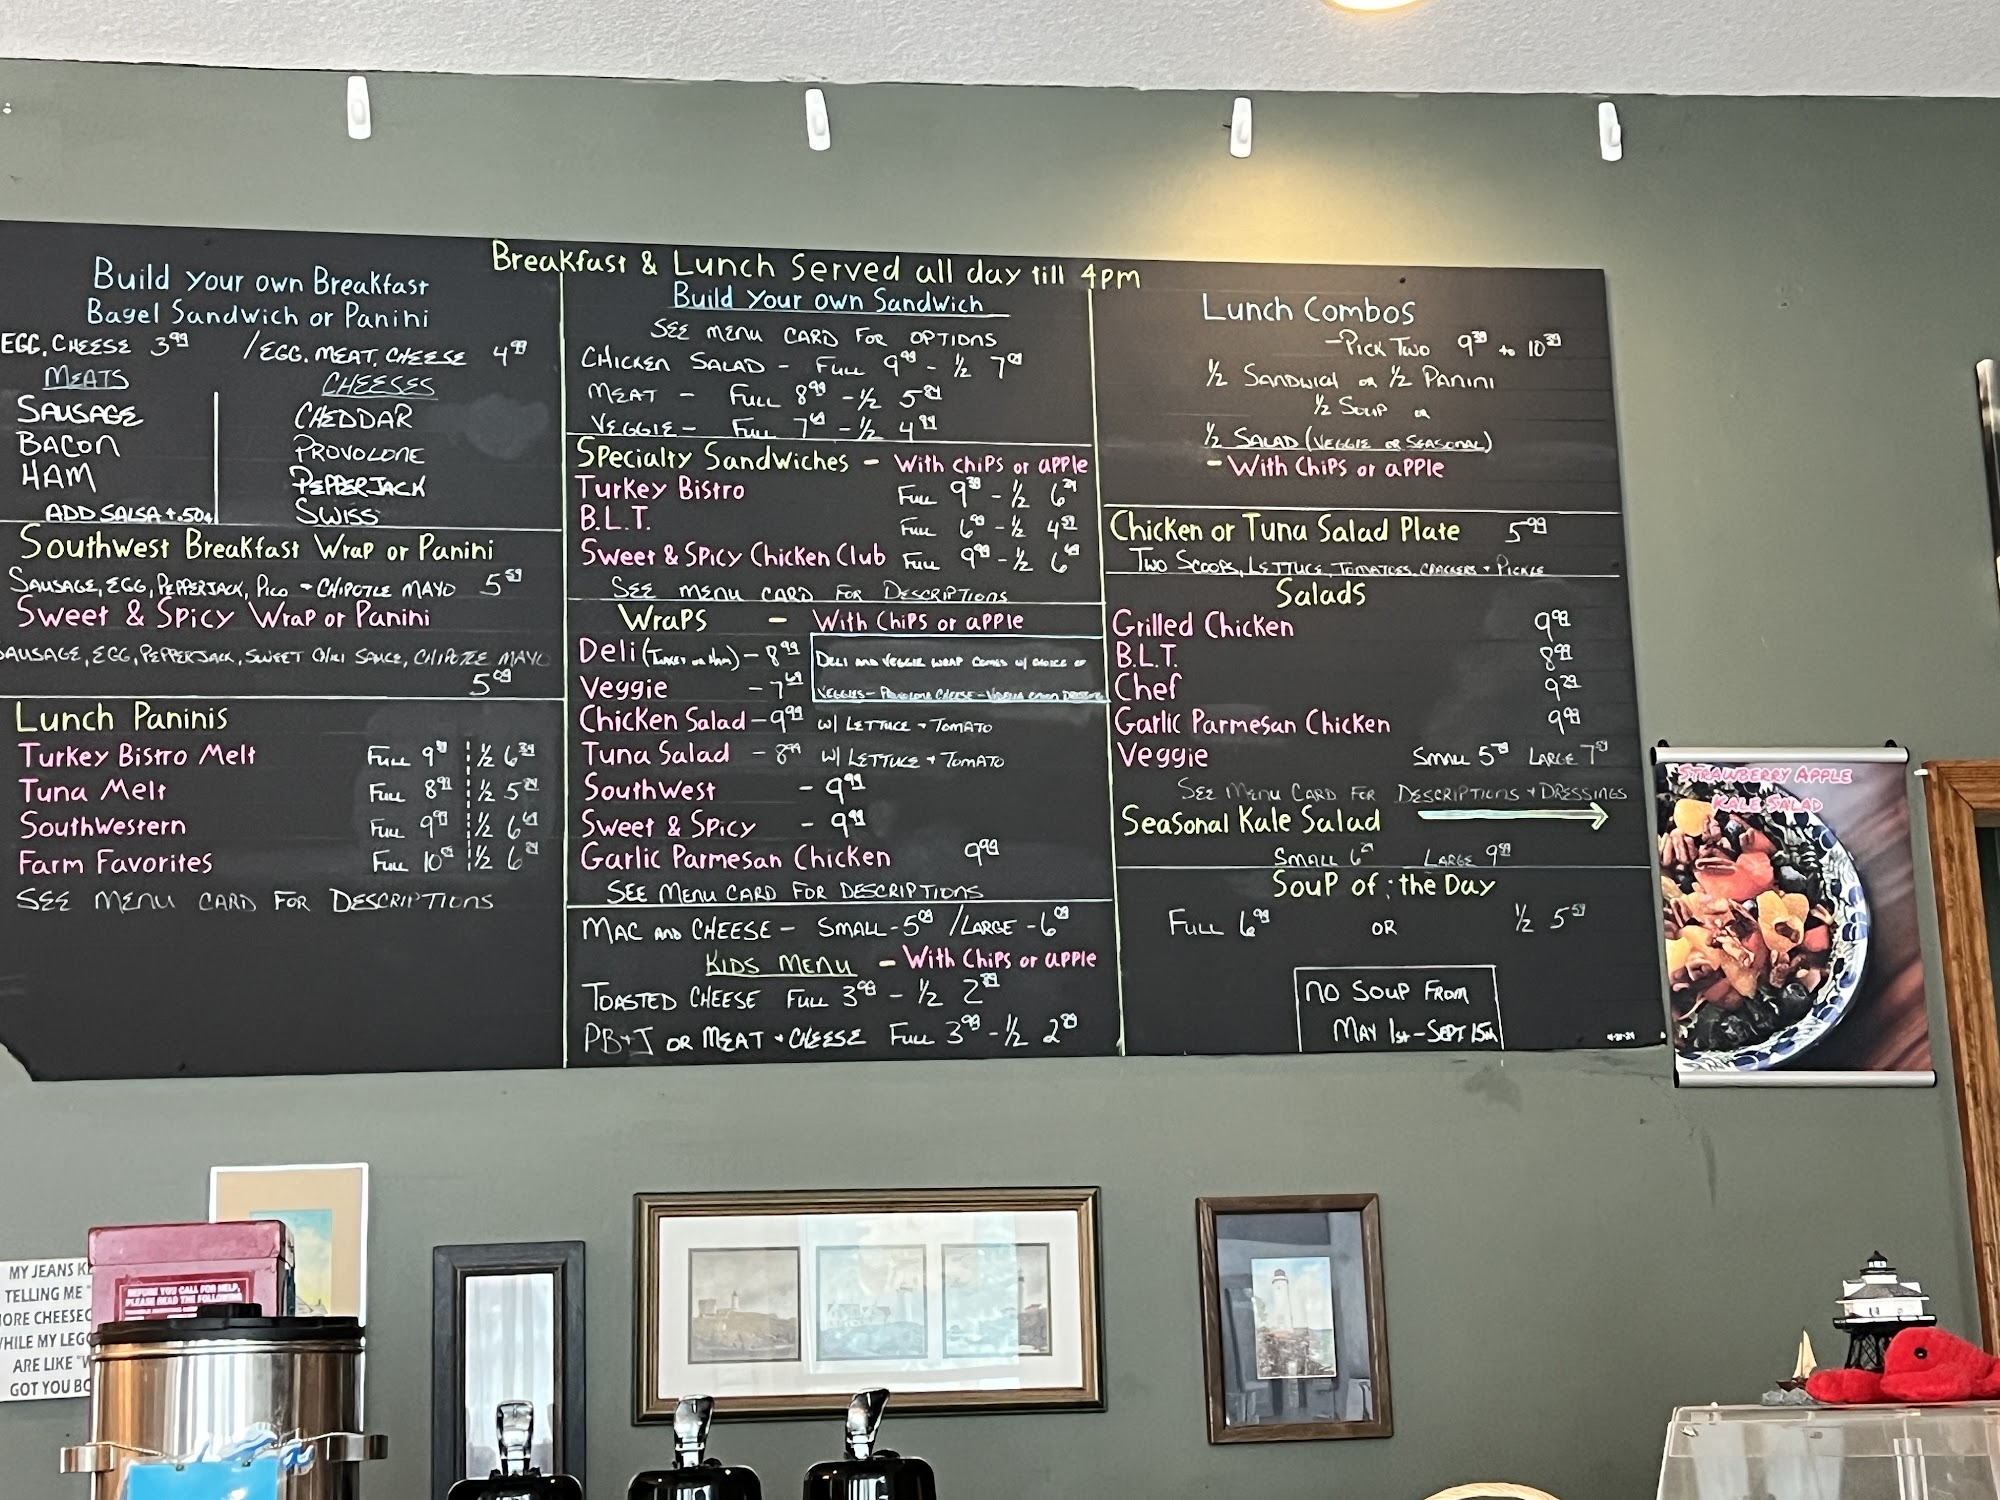 Breakfast & Lunch Served all day till 4pm
Build your own Breakfast
Bagel Sandwich or Panini
EGG, CHEESE 3.99 / EGG, MEAT, CHEESE 4.99
MEATS
SAUSAGE
BACON
HAM
ADD SALSA +.50¢
CHEESES
CHEDDAR
PROVOLONE
PEPPERJACK
SWISS
Southwest Breakfast Wrap or Panini
SAUSAGE, EGG, PEPPERJACK, PICO + CHIPOTLE MAYO 5.59
Sweet & Spicy Wrap or Panini
SAUSAGE, EGG, PEPPERJACK, SWEET CHILI SAUCE, CHIPOTLE MAYO
5.09
Lunch Paninis
Turkey Bistro Melt Full 9 1/2 6
Tuna Melt Full 8 1/2 5
Southwestern Full 9.99 1/2 6
Farm Favorites Full 10 1/2 6
SEE MENU CARD FOR DESCRIPTIONS
Build your own Sandwich
SEE MENU CARD FOR OPTIONS
CHICKEN SALAD - FULL 9.99 - 1/2 7
MEAT - FULL 8.99 - 1/2 5
VEGGIE - FULL 7 - 1/2 4
Specialty Sandwiches - With chips or apple
Turkey Bistro Full 9.39 - 1/2 6
B.L.T. Full 6.99 - 1/2 4.59
Sweet & Spicy Chicken Club Full 9.99 - 1/2 6
SEE MENU CARD FOR DESCRIPTIONS
Wraps - With chips or apple
Deli (Turkey or Ham) - 8.99
Veggie - 7
DELI AND VEGGIE WRAP COMES W/ CHOICE OF
VEGGIES - PROVOLONE CHEESE - VIDALIA ONION DRESSING
Chicken Salad - 9.99 w/ LETTUCE + TOMATO
Tuna Salad - 8.99 w/ LETTUCE + TOMATO
Southwest - 9.99
Sweet & Spicy - 9.99
Garlic Parmesan Chicken 9.99
SEE MENU CARD FOR DESCRIPTIONS
MAC AND CHEESE - SMALL - 5.09 / LARGE - 6.09
KIDS MENU - With chips or apple
TOASTED CHEESE FULL 3 - 1/2 2
PB+J OR MEAT + CHEESE FULL 3.99 - 1/2 2
Lunch Combos
- PICK TWO 9.39 to 10.39
1/2 SANDWICH OR 1/2 PANINI
1/2 SOUP OR
1/2 SALAD (VEGGIE OR SEASONAL)
- With chips or apple
Chicken or Tuna Salad Plate 5.99
TWO SCOOPS, LETTUCE, TOMATOES, CRACKERS + PICKLE
Salads
Grilled Chicken 9.99
B.L.T. 8.99
Chef 9.29
Garlic Parmesan Chicken 9.99
Veggie SMALL 5 LARGE 7.59
SEE MENU CARD FOR DESCRIPTIONS + DRESSINGS
Seasonal Kale Salad
SMALL 6 LARGE 9.99
Soup of the Day
FULL 6.99 OR 1/2 5.59
NO SOUP FROM
MAY 1st - SEPT 15th
STRAWBERRY APPLE
KALE SALAD
MY JEANS
TELLING ME
WHILE MY
ARE LIKE
GOT YOU
BEFORE YOU CALL FOR HELP,
PLEASE READ THE FOLLOWING